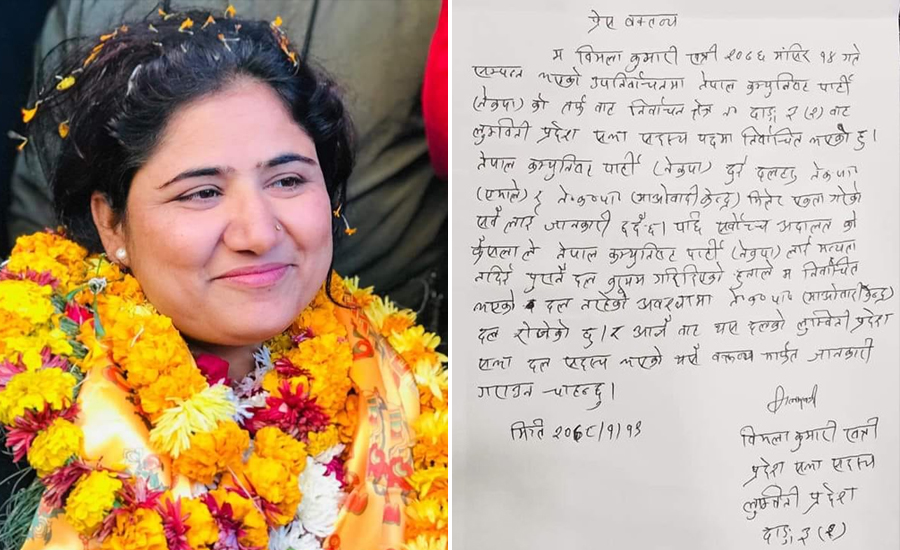 प्रेस वक्तव्य
म विमला कुमारी खत्री २०७६ मंसिर १४ गते
सम्पन्न भएको उपनिर्वाचनमा नेपाल कम्युनिष्ट पार्टी
(नेकपा) को तर्फ बाट निर्वाचन क्षेत्र नं दाङ ३ (२) बाट
लुम्विनी प्रदेश सभा सदस्य पदमा निर्वाचित भएको हु।
नेपाल कम्युनिष्ट पार्टी (नेकपा) दुई दलहरु ने.क.पा
(एमाले) र ने.क.पा (माओवादी केन्द्र) मिलेर एकता गरेको
सबै लाई जानकारी छदैँछ। पछि सर्वोच्च अदालत को
फैसला ले नेपाल कम्युनिष्ट पार्टी (नेकपा) लाई मान्यता
नदिई पुरानै दल कायम गरिदिएको हुनाले म निर्वाचित
भएको दल नरहेको अवस्थामा ने.क.पा (माओवादी केन्द्र)
दल रोजेको हु। र आजै बाट यस दलको लुम्विनी प्रदेश
सभा दल सदस्य भएको यसै वक्तव्य मार्फत जानकारी
गराउन चाहन्छु।
मिति २०७८/१/१३
विमला कुमारी खत्री
प्रदेश सभा सदस्य
लुम्विनी प्रदेश
दाङ ३ (२)